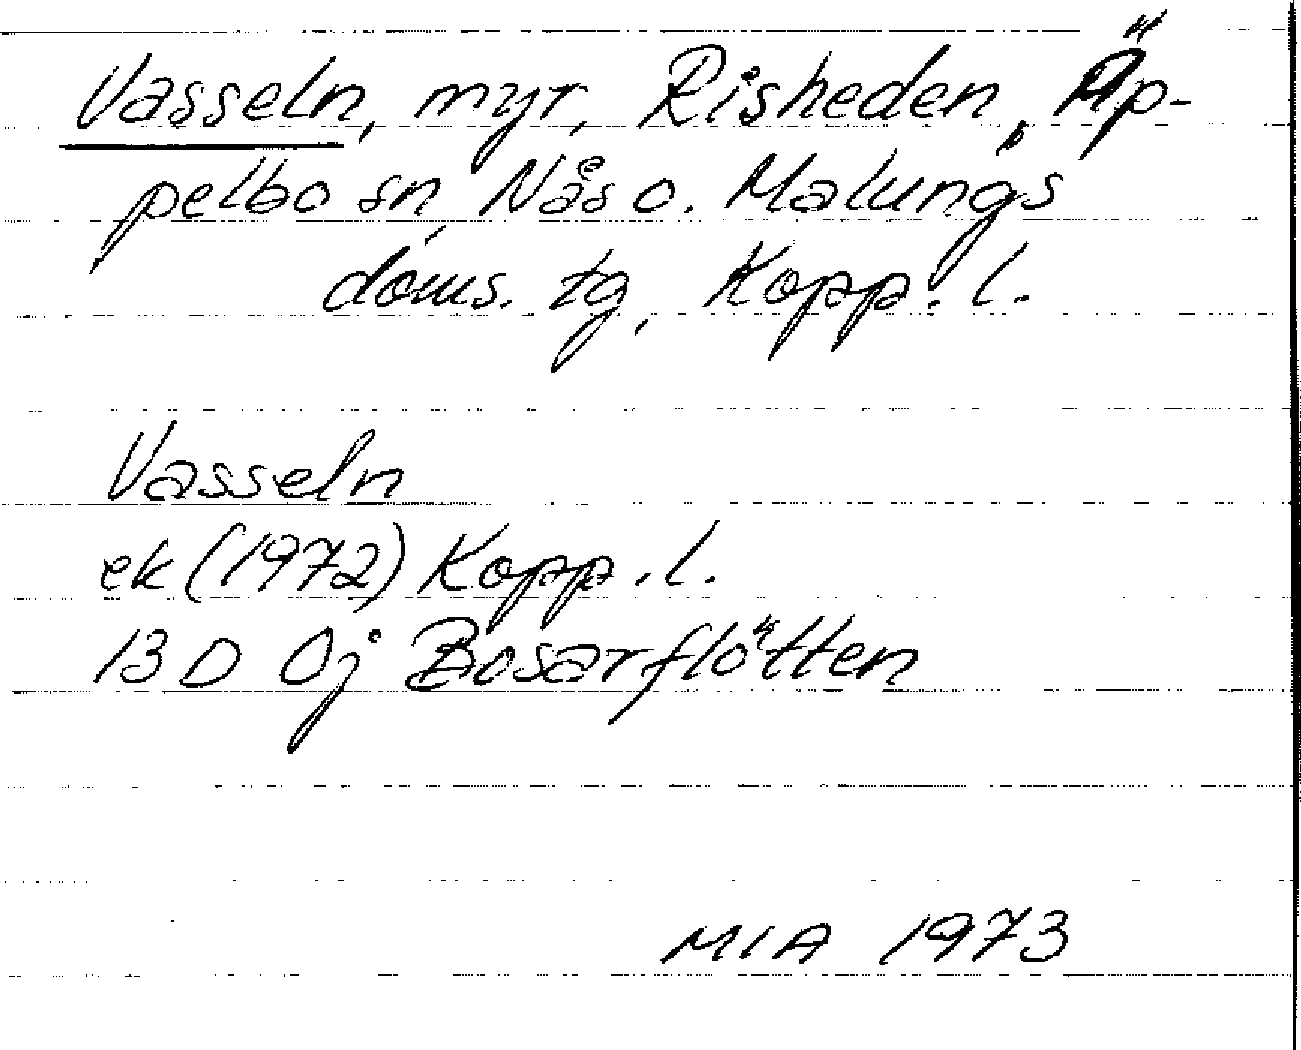 Vasseln, myr, Risheden, Äp-
pelbo sn, Nås o. Malungs
doms. tg, Kopp. l.
Vasseln
ek (1972) Kopp. l.
13 D 0j Bosarflötten
MIA 1973